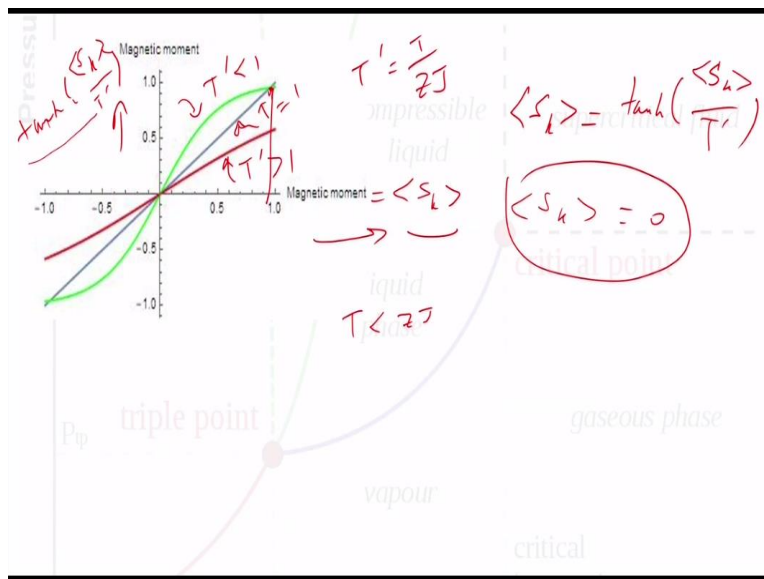 Pressu
Magnetic moment
tanh(<S_k>/T')
T' < 1
T' = 1
T' > 1
1.0
0.5
-1.0
-0.5
0.5
1.0
-0.5
-1.0
Magnetic moment = <S_k>
T' = T/zJ
<S_k> = tanh(<S_k>/T')
<S_k> = 0
T < zJ
ompressible
liquid
supercritical fluid
critical point
iquid
phase
triple point
P_tp
gaseous phase
vapour
critical